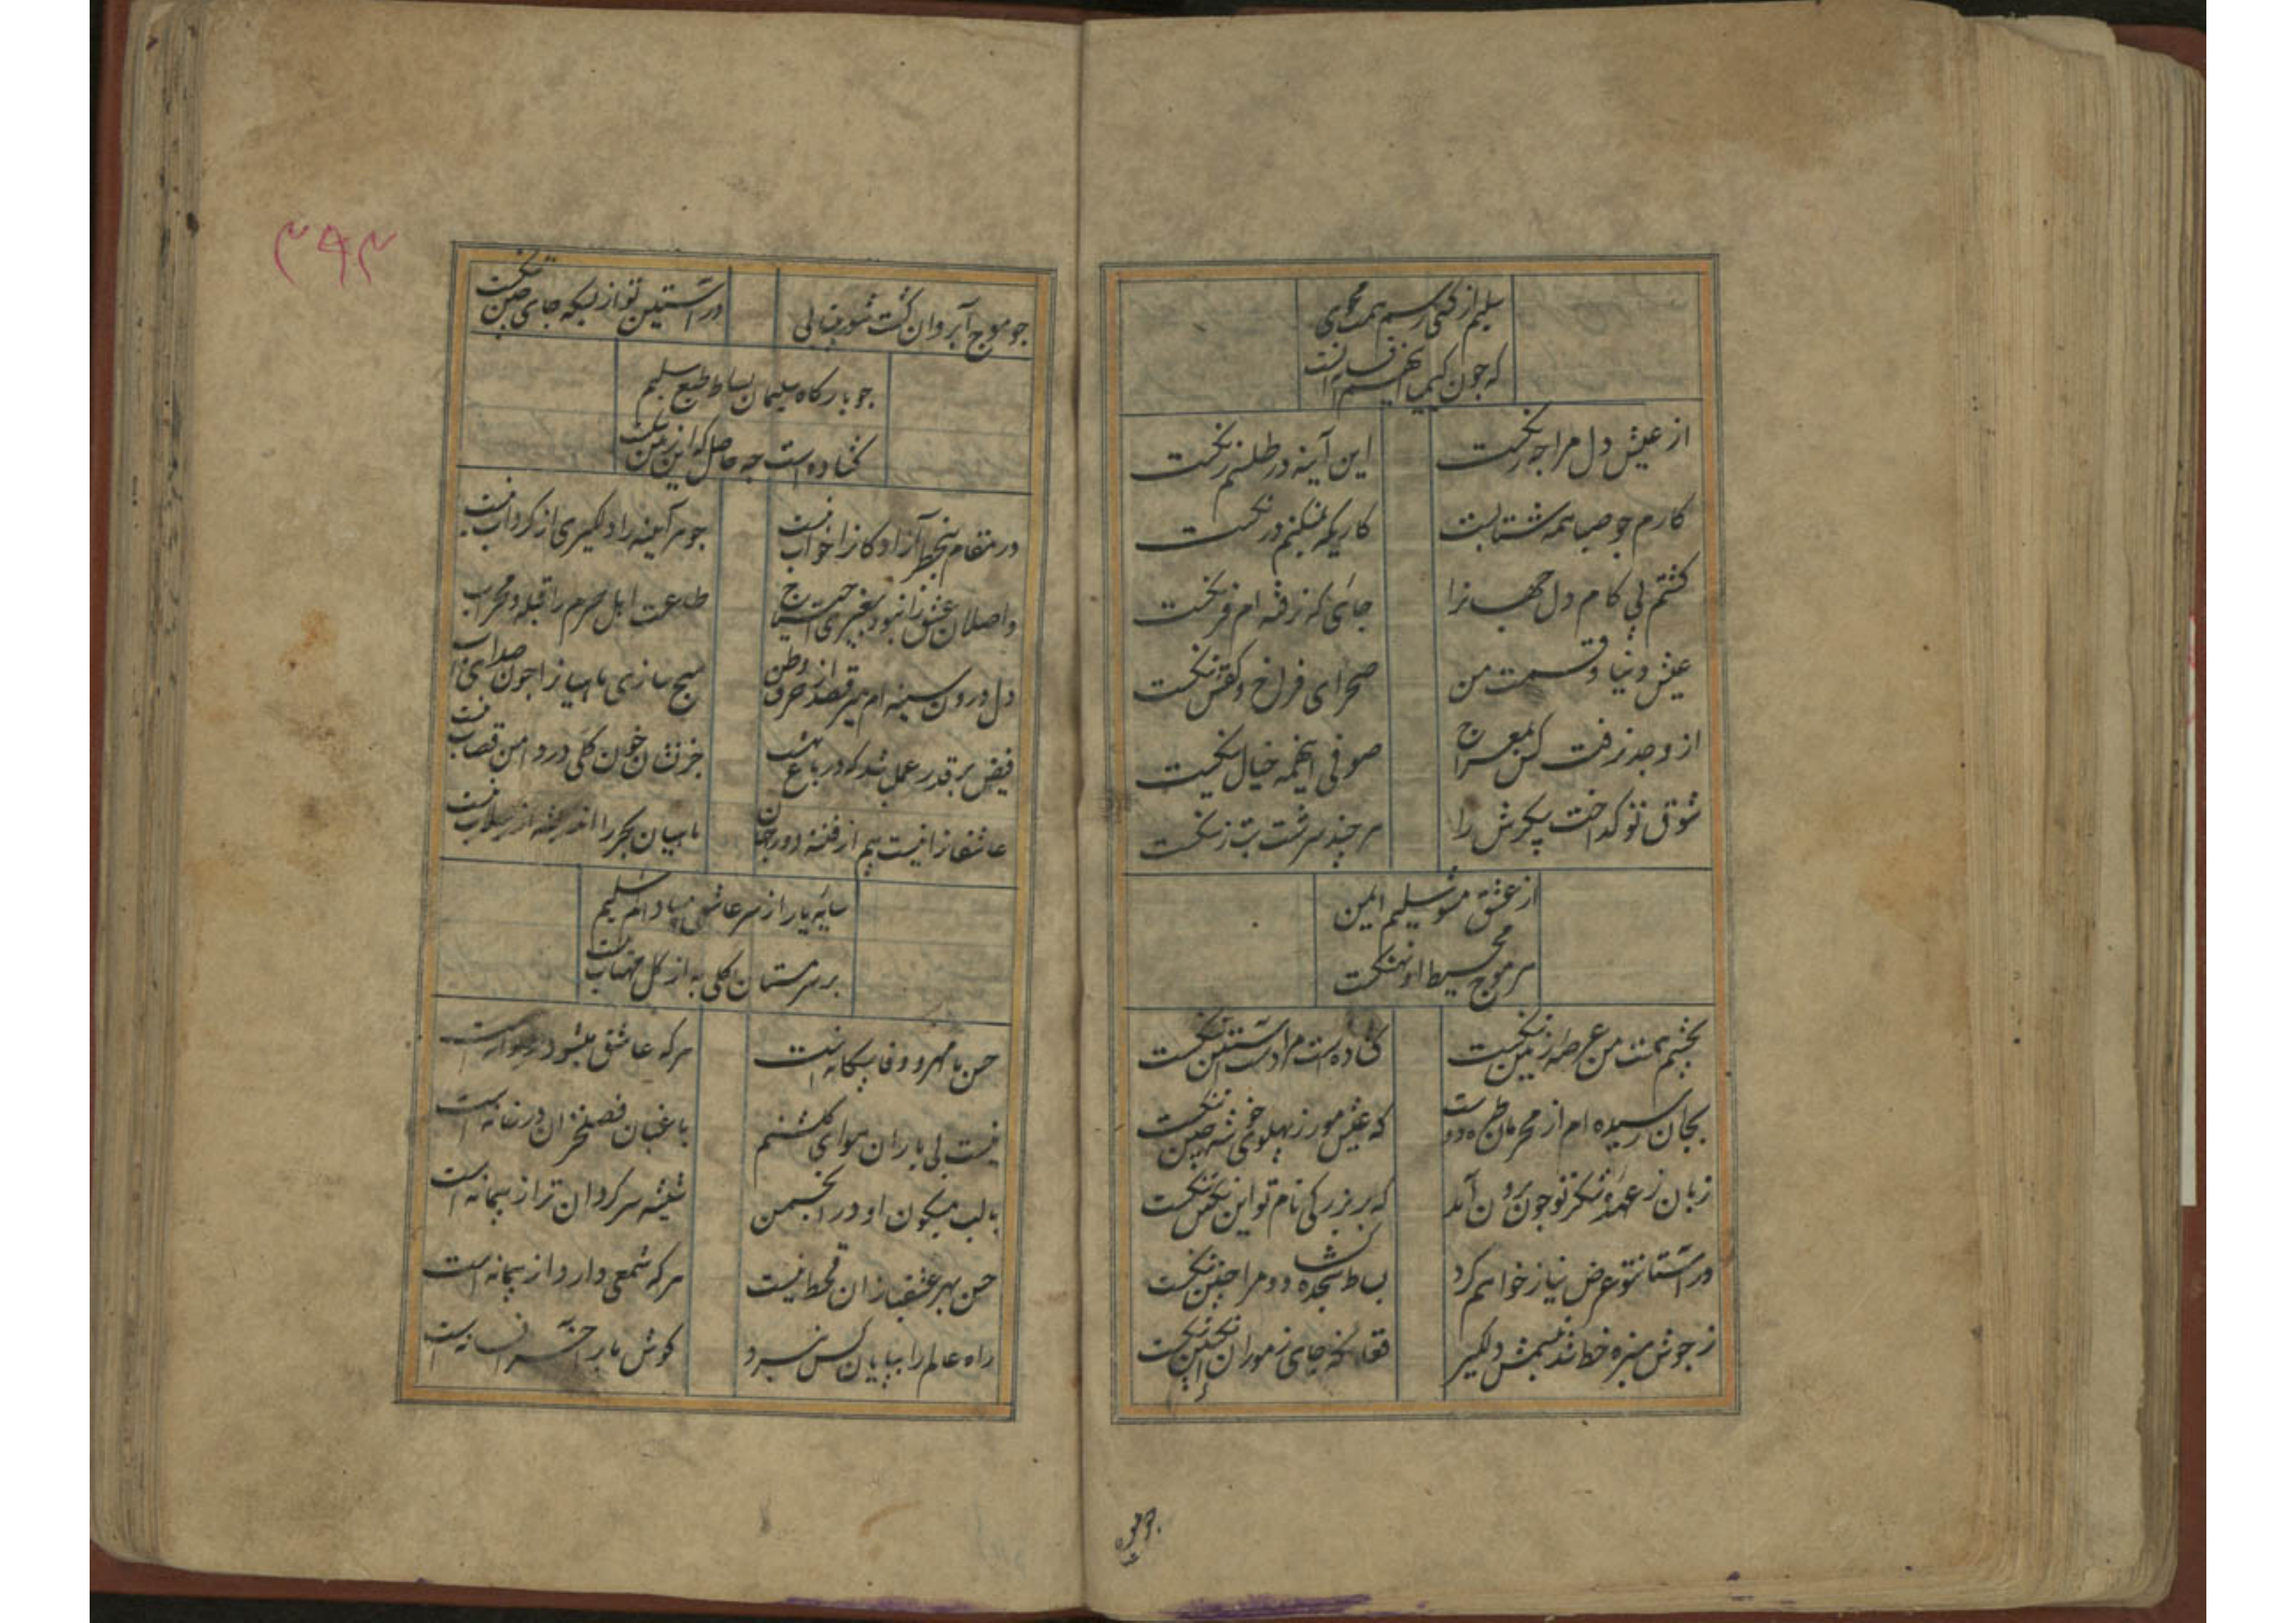 سلیم از کسی رسم همت مجوی
که چون کیمیا این هم افسانه است
از عیش دل مرا چه رنگست
این آینه در طلسم زنگست
کارم چو صبا همه شتابست
کاریکه نمیکنم درنگست
گشتم پی کام دل جهانرا
جائی که نرفته ام فرنگست
عیش دنیا و قسمت من
صحرای فراخ و کفش تنگست
از وجد نرفت کس بمعراج
صوفی اینهمه خیال بنگست
شوق تو گداخت پیکرش را
هر چند سرشت بت ز سنگست
از عشق مشو سلیم ایمن
هر موج محیط او نهنگست
بچشم همت من عرصه زمین تنگست
گشاده است مرا دست آستین تنگست
بجان رسیده ام از محرمان طره دوست
که عیش مور ز پهلوی خوشه چین تنگست
زبان ز عهده شکر تو چون برون آید
که بر بزرگی نام تو این نگین تنگست
در آستان تو عرض نیاز خواهم کرد
بساط سجده گشاد و مرا جبین تنگست
ز جوش سبزه خط شد تبسمش دلگیر
فغان که جای ز موران در انگبین تنگست
چو موج
چو موج آب روان گشت شور بیتابی
در آستین تو از بسکه جای چین تنگست
چو بارگاه سلیمان بساط طبع سلیم
گشاده است چه حاصل که این زمین تنگست
در مقام بیخطر آزادگانرا خواب نیست
جوهر آیینه را دلگیری از گرداب نیست
واصلان عشق را نبود بغیری احتیاج
طاعت اهل حرم را قبله و محراب نیست
دل درون سینه ام میرقصد از حرف وطن
هیچ سازی ماهیانرا چون صدای آب نیست
فیض بر قدر عمل شد که در باغ بهشت
جز نشان خون گلی در دامن قصاب نیست
عاشقانرا نیست بیم از فتنه دور جهان
ماهیان بحر را اندیشه از سیلاب نیست
سایه یار از سر عاشق مبادا کم سلیم
بر سر مستان گلی به از گل مهتاب نیست
حسن با مهر و وفا بیگانه است
هر که عاشق میشود دیوانه است
نیست بی یاران هوای گلشنم
باغبان فصل خزان در خانه است
با لب میگون او در انجمن
شیشه سرگردان تر از پیمانه است
حسن بهر عشقبازان قحط نیست
هر که شمعی دارد از پیمانه است
راه عالم را بپایان کس نبرد
گوش ما بر آخر افسانه است